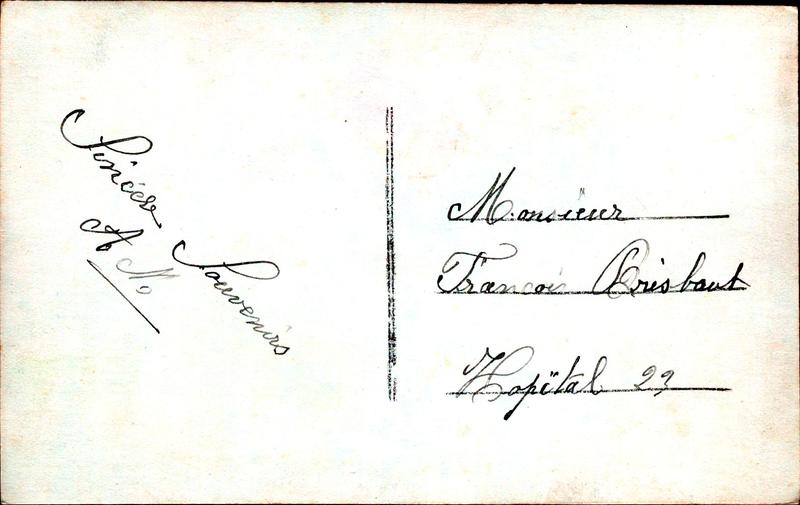 Sincère Souvenirs
A M
Monsieur
François Brisbout
Hopital 23